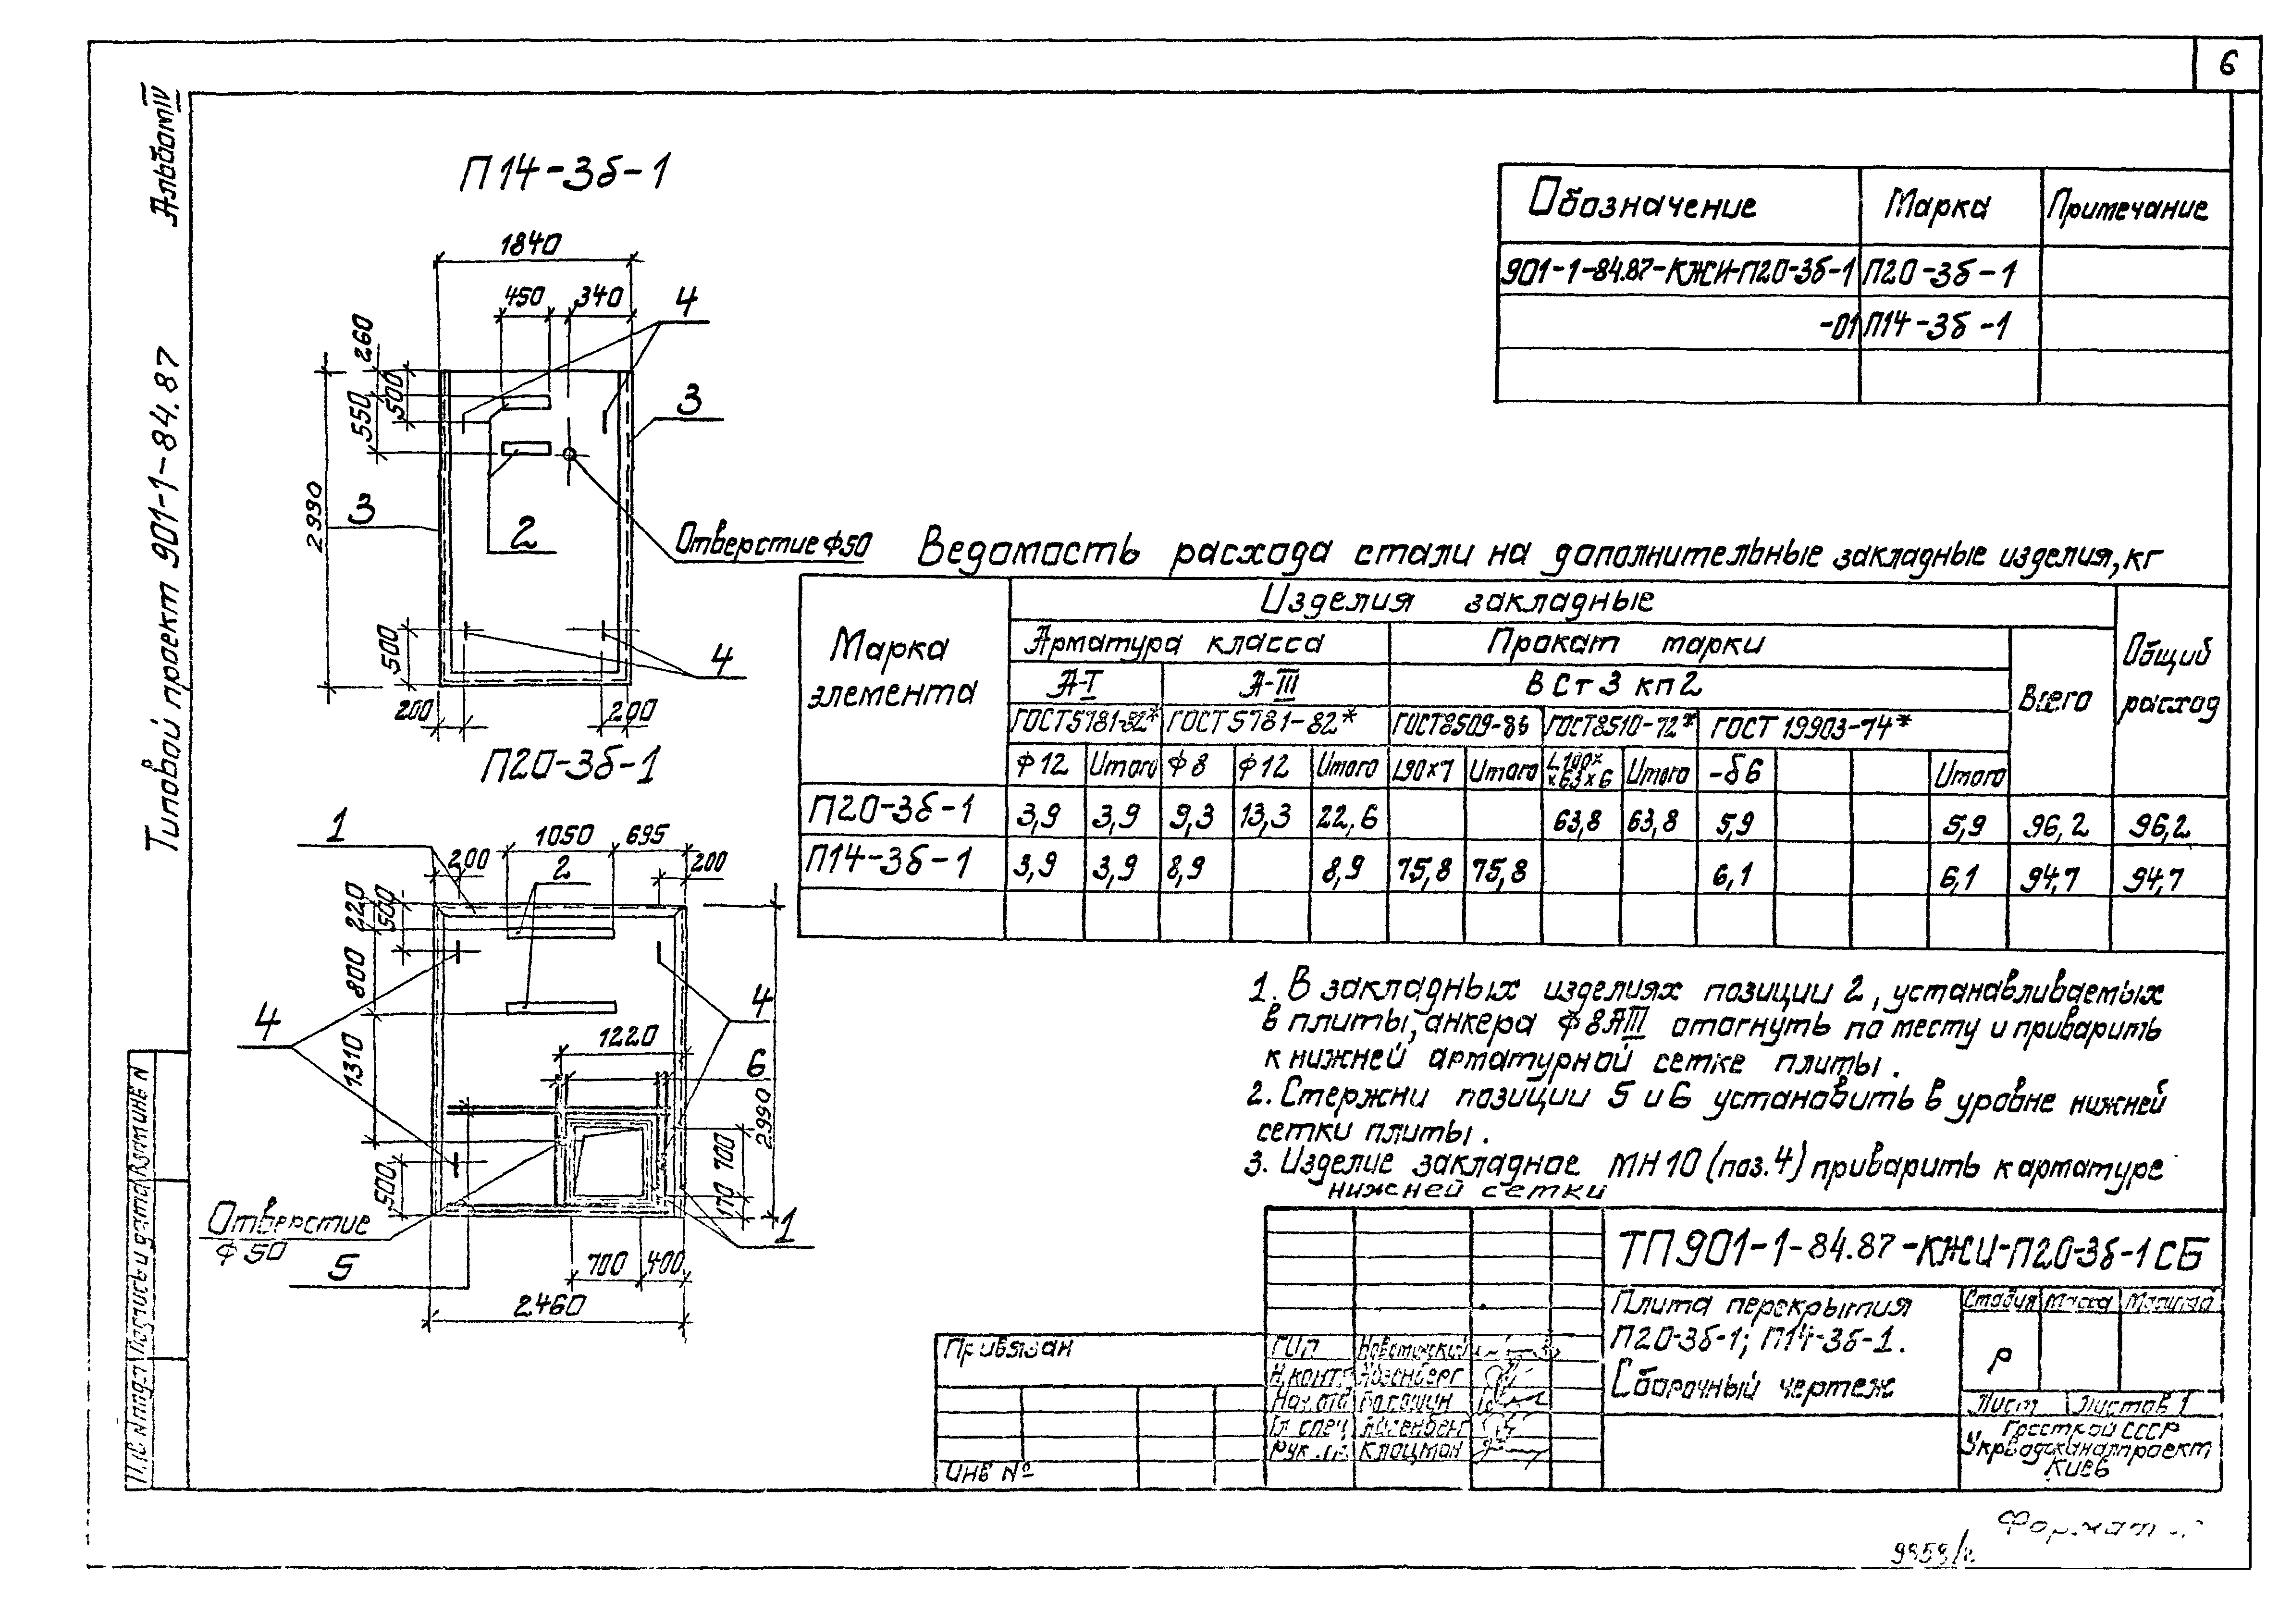 6
Альбом IV
Типовой проект 901-1-84.87
П14-3б-1
1840
450 340
4
260
500
550
3
2990
3
2
Отверстие ф50
500
4
200 200
Обозначение Марка Примечание
901-1-84.87-КЖИ-П20-3б-1 П20-3б-1
-01 П14-3б-1
Ведомость расхода стали на дополнительные закладные изделия, кг
Марка элемента
Изделия закладные
Общий расход
Арматура класса Прокат марки Всего
А-I А-III ВСт3кп2
ГОСТ5781-82* ГОСТ5781-82* ГОСТ8509-86 ГОСТ8510-72* ГОСТ 19903-74*
ф12 Итого ф8 ф12 Итого L90х7 Итого L100х х63х6 Итого -δ6 Итого
П20-3б-1 3,9 3,9 9,3 13,3 22,6 63,8 63,8 5,9 5,9 96,2 96,2
П14-3б-1 3,9 3,9 8,9 8,9 75,8 75,8 6,1 6,1 94,7 94,7
П20-3б-1
1
1050 695
200 2 200
220
500
800
4
4
1310
1220
6
2990
700
170
500
Отверстие
ф50
1
5
700 400
2460
1. В закладных изделиях позиции 2, устанавливаемых
в плиты, анкера ф8АIII отогнуть по месту и приварить
к нижней арматурной сетке плиты.
2. Стержни позиции 5 и 6 установить в уровне нижней
сетки плиты.
3. Изделие закладное МН10 (поз.4) приварить к арматуре
нижней сетки
ТП901-1-84.87-КЖИ-П20-3б-1СБ
Плита перекрытия
П20-3б-1; П14-3б-1.
Сборочный чертеж
Стадия Масса Масштаб
Р
Лист Листов 1
Госстрой СССР
Укрводоканалпроект
Киев
Привязан
ИНВ №
ГИП
Н.контр.
Нач.отд
Гл.спец.
Рук.гр. Клоцман
Подпись и дата
Взам.инв N
Формат